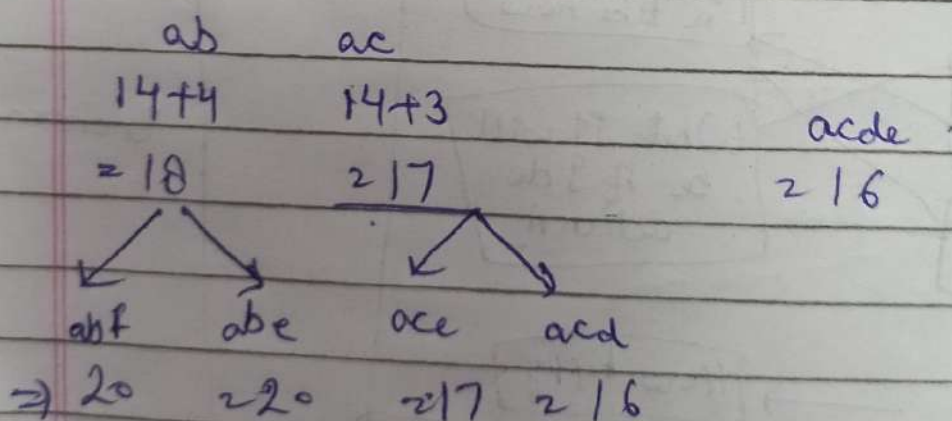 ab ac
14+4 14+3
acde
= 18 = 17 = 16
abf abe ace acd
⇒ 20 = 20 = 17 = 16